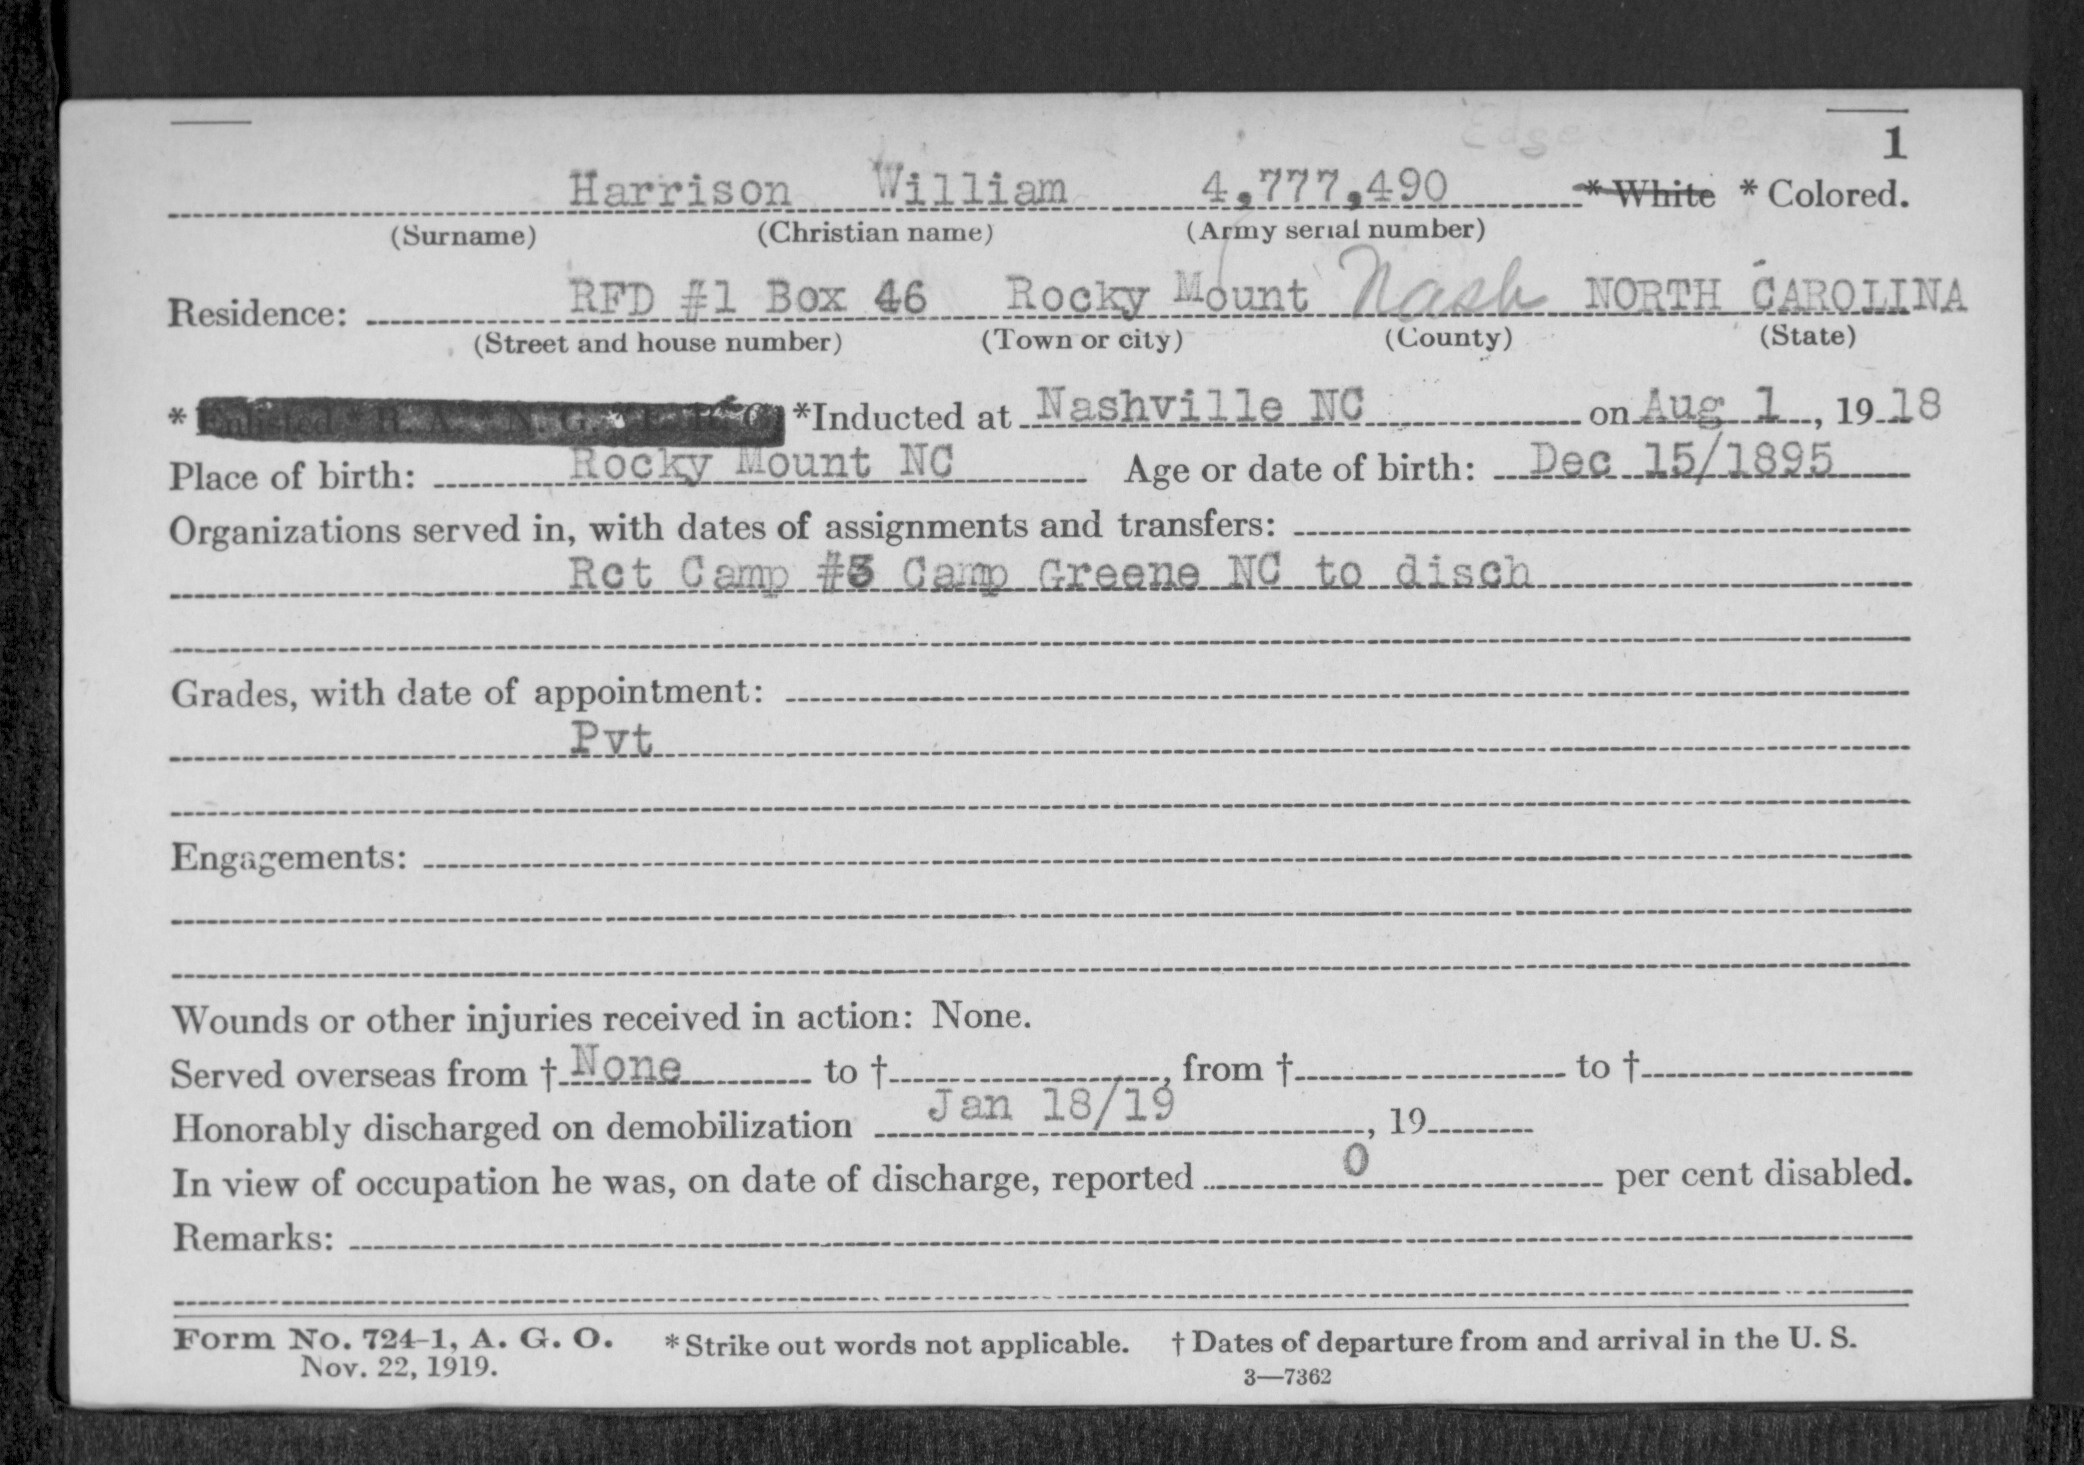 1
Harrison William 4,777,490 * White * Colored.
(Surname) (Christian name) (Army serial number)
Residence: RFD #1 Box 46 Rocky Mount Nash NORTH CAROLINA
(Street and house number) (Town or city) (County) (State)
* Enlisted R. A. N. G. E. R. C. *Inducted at Nashville NC on Aug 1, 19 18
Place of birth: Rocky Mount NC Age or date of birth: Dec 15/1895
Organizations served in, with dates of assignments and transfers:
Rct Camp #3 Camp Greene NC to disch
Grades, with date of appointment:
Pvt
Engagements:
Wounds or other injuries received in action: None.
Served overseas from † None to †, from † to †
Honorably discharged on demobilization Jan 18/19, 19
In view of occupation he was, on date of discharge, reported 0 per cent disabled.
Remarks:
Form No. 724-1, A. G. O. * Strike out words not applicable. † Dates of departure from and arrival in the U. S.
Nov. 22, 1919. 3—7362